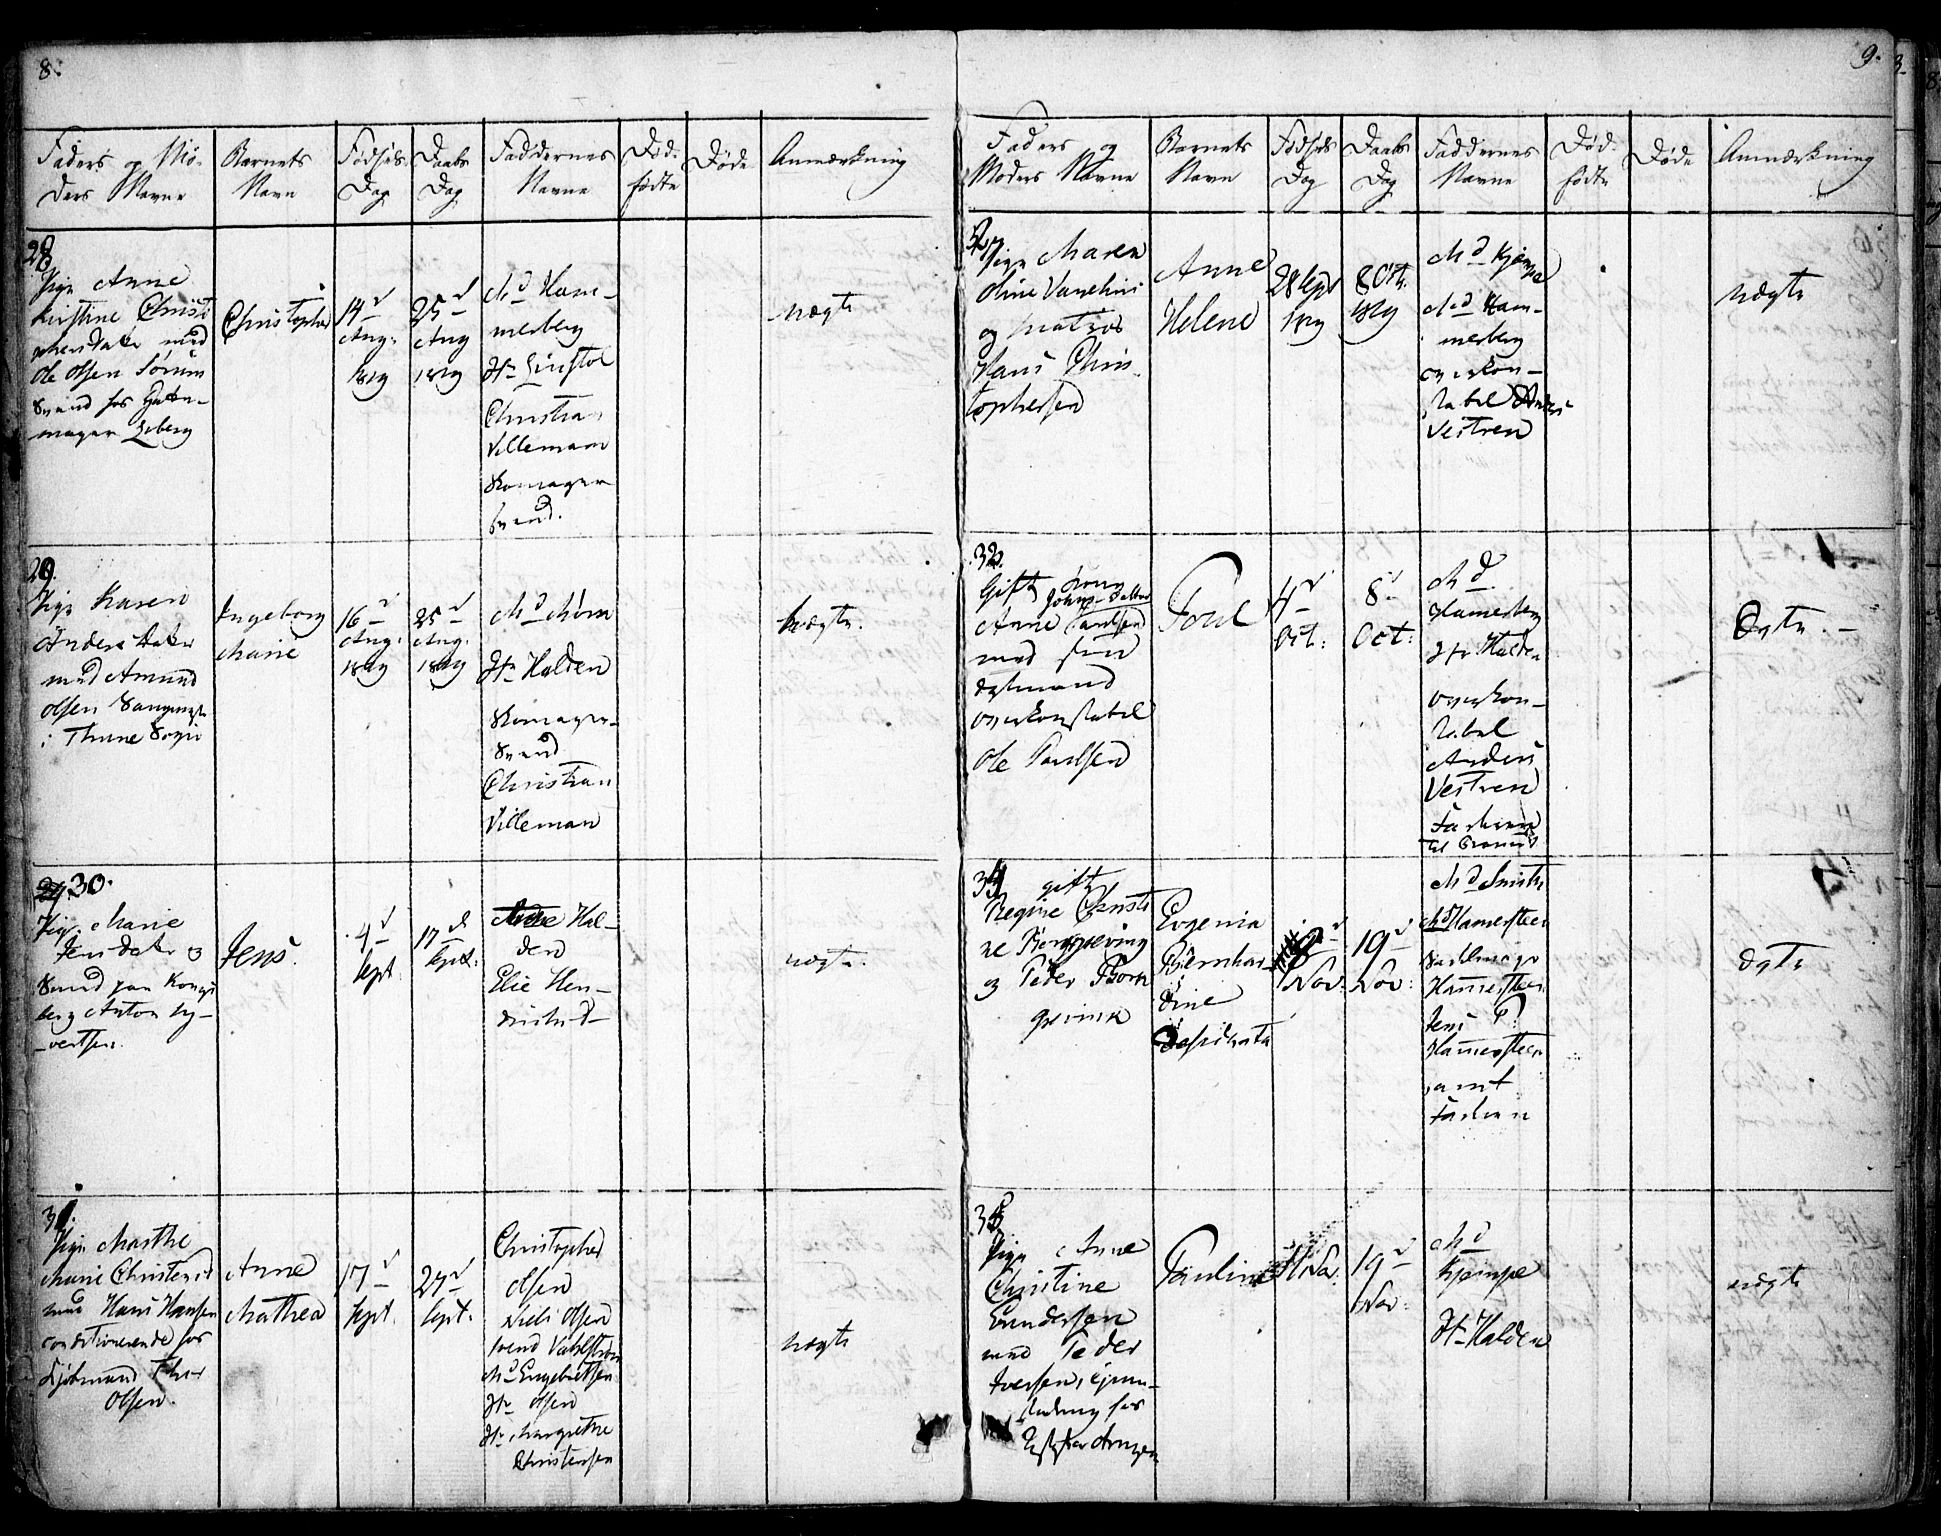 8.
Faders og Mo-
ders Navne
Barnets
Navn
Fødsels
Dag
Daabs
Dag
Faddernes
Navne
Død-
fødte
Døde
Anmærkning
28
Pige Anne
Kirstine Christ
datr med
Ole Olsen Sørum
Svend hos
mager
Christopher
14d
Aug:
1819
25d
Aug
1819
Md Ham-
merberg
Hr
Christian
Villemann
Skomager
svend.
uægte
29.
Pige Karen
Anders datr
med Amund
Olsen
i Thune Sogn
Ingeborg
Marie
16d
Aug.
1819
25d
Aug.
1819
Md Moen
Hr Halden
Skomager-
Svend
Christian
Villeman
uægte.
30.
Pige Marie
Jens datr og
Svend paa Kongs
berg Anton Sy-
vertsen.
Jens.
4d
Sept.
17d
Sept:
Hal-
den
Elie Hen-
uægte.
31.
Pige Marthe
Marie Christensd
med Hans Hansen
conditionerende hos
Kjøbmand Thor
Olsen.
Anne
Mathea
17d
Sept.
27d
Sept.
Christopher
Olsen
Niels Olsen
Svend Vahlstrøm
Md Engebretsen
Hr Olsen
Margrethe
Christensen
uægte
9.
Faders og
Moders Navne
Barnets
Navn
Fødsels
Dag
Daabs
Dag
Faddernes
Navne
Død-
fødte
Døde
Anmærkning
32
Pige Maren
Oline
og Matros
Hans Chris-
tophersen
Anne
Helene
28 Sept
1819
8 Oct.
1819
Md Kjempe
Md Ham-
merberg
overkon-
stabel Anders
Vestren
uægte
Gift Kone
Anne
med sin
Ægtmand
overkonstabel
Ole Paulsen
Poul
4d
Oct:
8d
Oct:
Md.
Hamerberg
Hr Halden
overkon-
stabel
Anders
Vestren
Faderen
til Barnet
Ægte.
34
gift
Regine Christi
ne
og Peder
Eugenia
Bjernhar
dine
Desiderata
Nov:
19d
Nov:
Md Smith
Md Hamersteen
Sadelmager
Hamersteen
Jens P.
Hamersteen
samt
Faderen
ægte
35
Pige Anne
Christine
Gundersen
med Peder
Iversen,
hos
Pauline
19d
Nov:
Md
Kjempe
Hr Halden
uægte